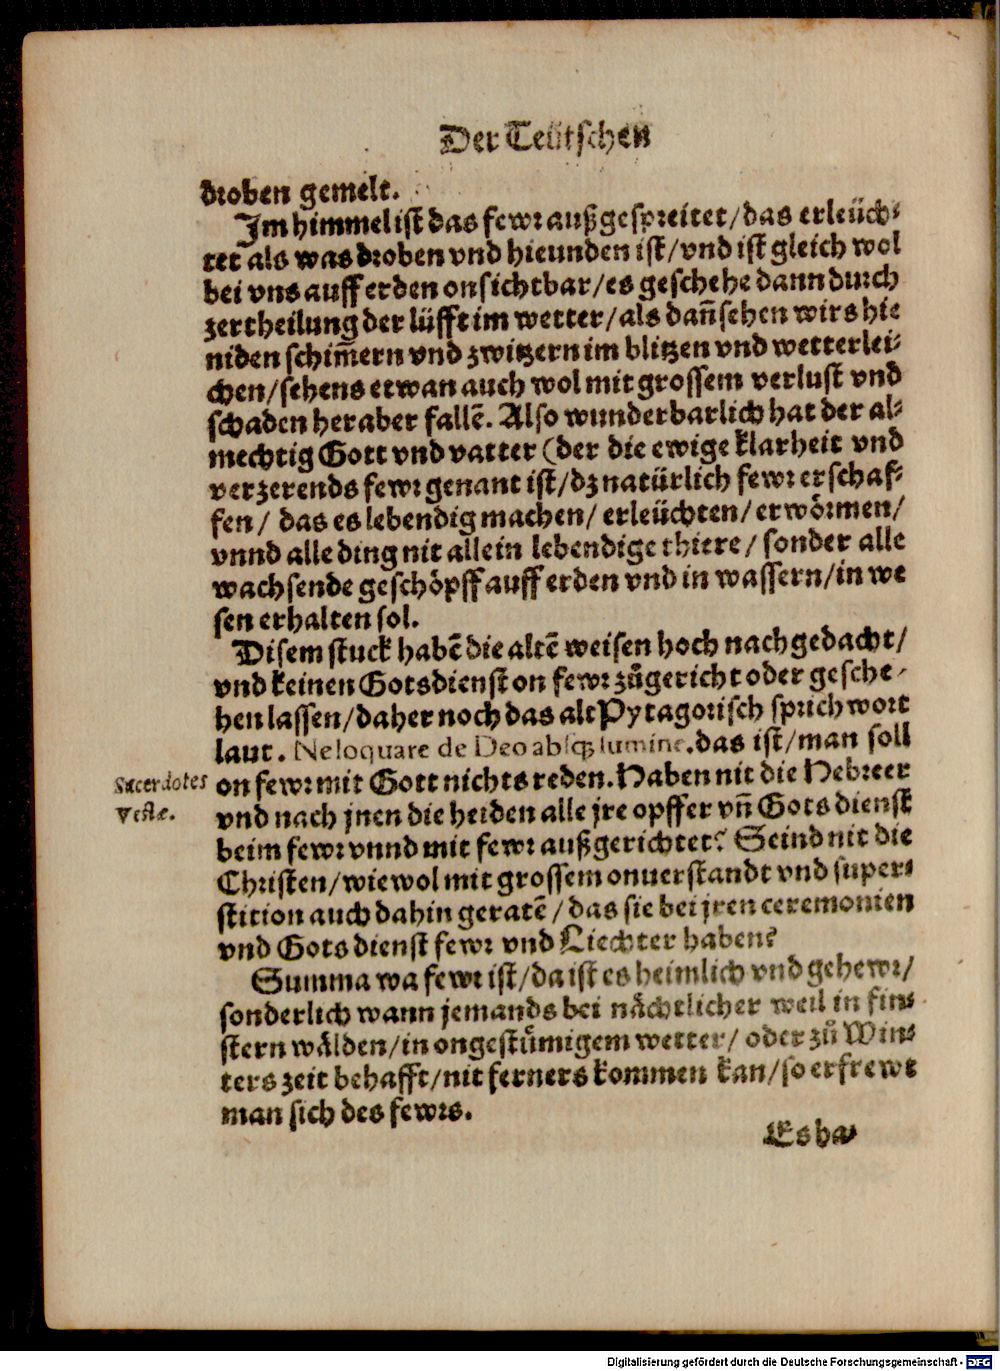 Der Teütschen
droben gemelt.
Im himmel ist das fewr außgespreitet/das erleüch⸗
tet als was droben vnd hieunden ist/vnd ist gleich wol
bei vns auff erden onsichtbar/es geschehe dann durch
zertheilung der lüfft im wetter/als dañ sehen wirs hie
niden schim̃ern vnd zwitzern im blitzen vnd wetterlei⸗
chen/sehens etwan auch wol mit grossem verlust vnd
schaden heraber fallẽ. Also wunderbarlich hat der al⸗
mechtig Gott vnd vatter (der die ewige klarheit vnd
verzerends fewr genant ist/dz natürlich fewr erschaf⸗
fen/ das es lebendig machen/ erleüchten/ erwörmen/
vnnd alle ding nit allein lebendige thiere/ sonder alle
wachsende geschöpff auff erden vnd in wassern/in we
sen erhalten sol.
Disem stuck habẽ die altẽ weisen hoch nachgedacht/
vnd keinen Gotsdienst on fewr zůgericht oder gesche⸗
hen lassen/daher noch das alt Pytagorisch sprichwort
laut. Ne loquare de Deo absq; lumine.das ist/man soll
on fewr mit Gott nichts reden. Haben nit die Hebreer
vnd nach jnen die heiden alle jre opffer vñ Gots dienst
beim fewr vnnd mit fewr außgerichtet? Seind nit die
Christen/wiewol mit grossem onuerstandt vnd super⸗
stition auch dahin geratẽ/das sie bei jren ceremonien
vnd Gots dienst fewr vnd Liechter haben?
Summa wa fewr ist/da ist es heimlich vnd gehewr/
sonderlich wann jemands bei nächtlicher weil in fin⸗
stern wälden/in ongestůmigem wetter/ oder zů Win⸗
ters zeit behafft/nit ferners kommen kan/so erfrewt
man sich des fewrs.
Es ha⸗
Sacerdotes
Vestæ.
Digitalisierung gefördert durch die Deutsche Forschungsgemeinschaft - DFG